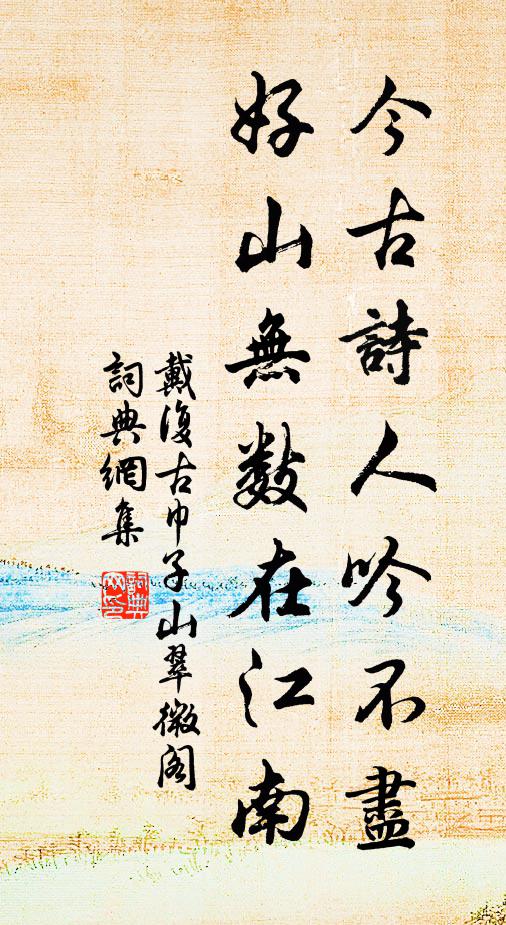 今古詩人吟不盡
好山無数在江南
戴復古巾子山翠微阁
詞典網集
詞典網印